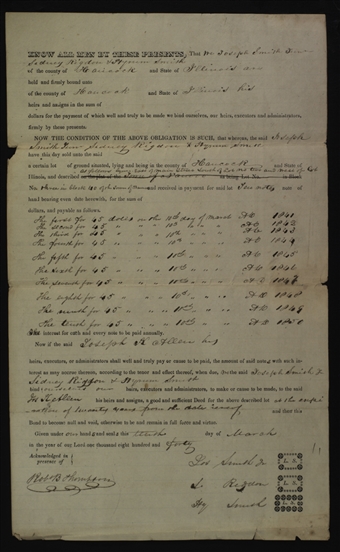 KNOW ALL MEN BY THESE PRESENTS, That We Joseph Smith Junr
Sidney Rigdon & Hyrum Smith
of the county of Hancock and State of Illinois are
held and firmly bound unto
of the county of Hancock and State of Illinois his
heirs and assigns in the sum of
dollars for the payment of which well and truly to be made we bind ourselves, our heirs, executors and administrators,
firmly by these presents.
NOW THE CONDITION OF THE ABOVE OBLIGATION IS SUCH, that whereas, the said Joseph
Smith Junr Sidney Rigdon & Hyrum Smith
have this day sold unto the said
a certain lot of ground situated, lying and being in the county of Hancock and State of
Illinois, and described
No. three in Block received in payment for said lot
hand bearing even date herewith, for the sum of
dollars, and payable as follows.
The first for 45 dollars on the 10th day of March AD 1841
The second for 45 " " " 10th " " " AD 1842
The third for 45 " " " 10th " " " AD 1843
The fourth for 45 " " " 10th " " " AD 1844
The fifth for 45 " " " 10th " " " AD 1845
The sixth for 45 " " " 10th " " " AD 1846
The seventh for 45 " " " 10th " " " AD 1847
The eighth for 45 " " " 10th " " " AD 1848
The ninth for 45 " " " 10th " " " AD 1849
The tenth for 45 " " " 10th " " " AD 1850
interest for each and every note to be paid annually.
Now if the said Joseph his
heirs, executors, or administrators shall well and truly pay or cause to be paid, the amount of said notes, with such interest
as may accrue thereon, according to the tenor and effect thereof, when due. Do the said Joseph Smith Jr
Sidney Rigdon & Hyrum Smith
bind heirs, executors and administrators, to make or cause to be made, to the said
heirs and assigns, a good and sufficient Deed for the above described lot
of twenty years from the date hereof and then this
Bond to become null and void, otherwise to be and remain in full force and virtue.
Given under our hand and seal this tenth day of March
in the year of our Lord one thousand eight hundred and forty
Acknowledged in presence of
Jos Smith Jr L. S.
Rob B Thompson
S. Rigdon L. S.
Hy Smith L. S.